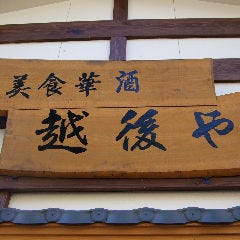 美食華酒
越後や